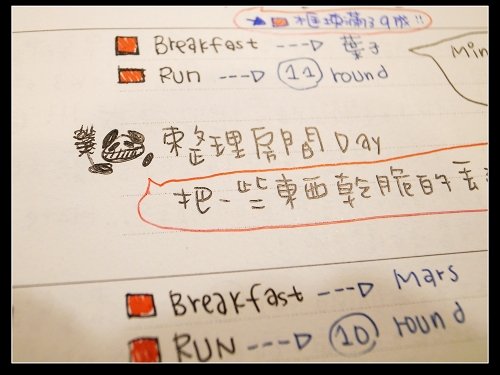 框框滿了9成!!
Breakfast ---> 葉子
Run ---> 11 round
Min
整理房間Day
把一些東西乾脆的丟
Breakfast ---> Mars
RUN ---> 10 round